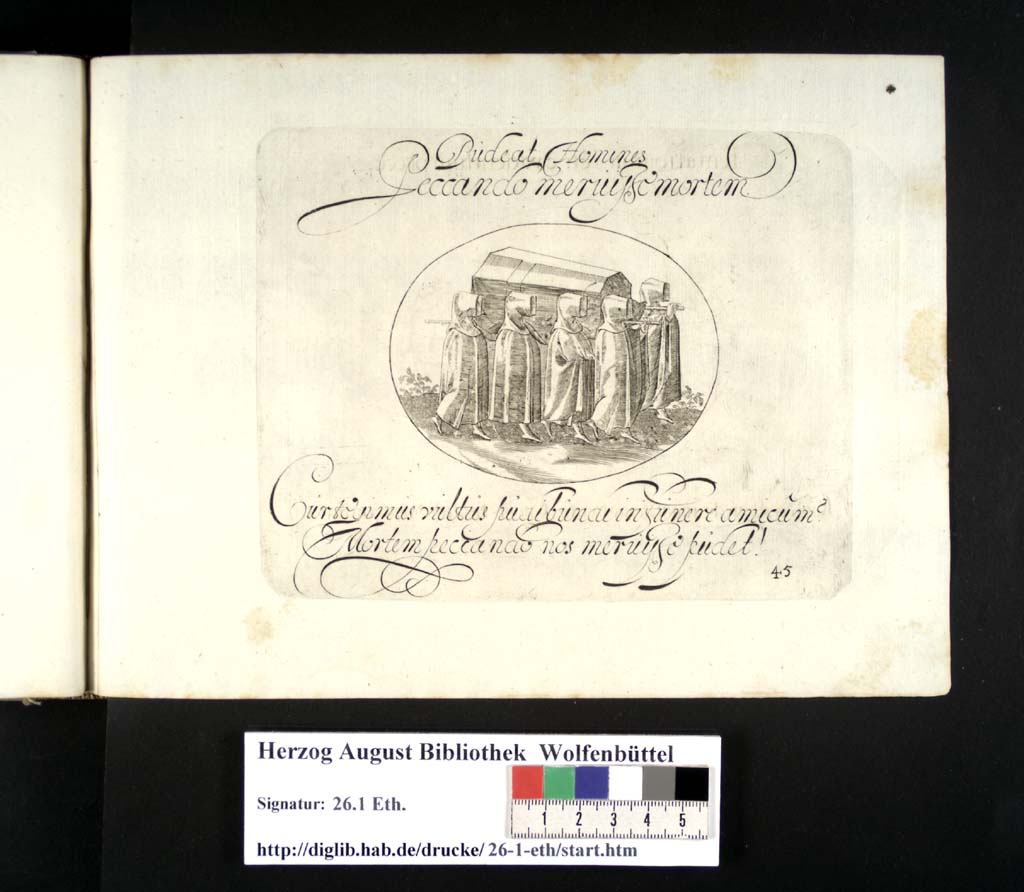 Pudeat Homines
Peccando meruiſſe mortem
Cur tegimus vultus pudibundi in funere amicum?
Mortem peccando nos meruiſſe pudet!
45
Herzog August Bibliothek Wolfenbüttel
Signatur: 26.1 Eth.
1 2 3 4 5
http://diglib.hab.de/drucke/ 26-1-eth/start.htm